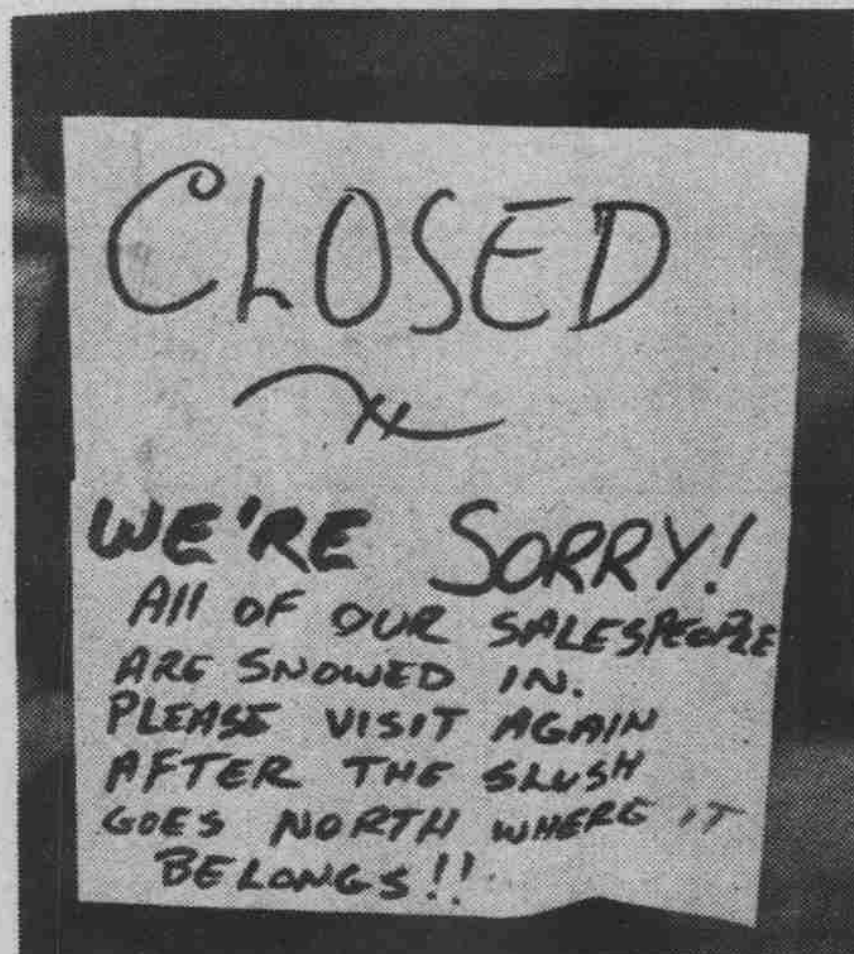 CLOSED
WE'RE SORRY!
All OF OUR SALESPEOPLE
ARE SNOWED IN.
PLEASE VISIT AGAIN
AFTER THE SLUSH
GOES NORTH WHERE IT
BELONGS!!